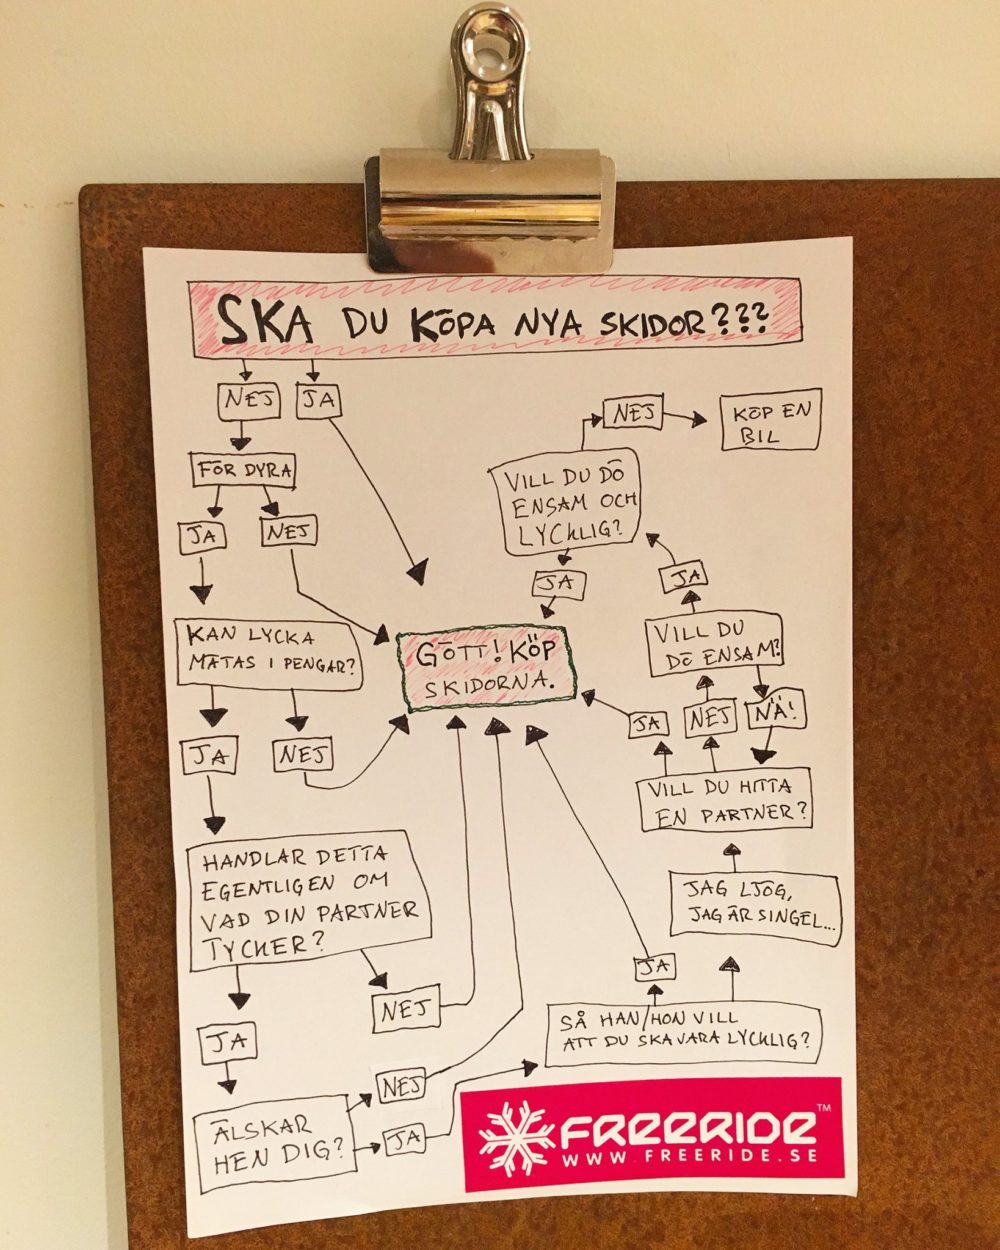 SKA DU KÖPA NYA SKIDOR???
NEJ
JA
FÖR DYRA
JA
NEJ
KAN LYCKA
MÄTAS I PENGAR?
JA
NEJ
HANDLAR DETTA
EGENTLIGEN OM
VAD DIN PARTNER
TYCKER?
NEJ
JA
ÄLSKAR
HEN DIG?
NEJ
JA
SÅ HAN/HON VILL
ATT DU SKA VARA LYCKLIG?
JA
JAG LJÖG,
JAG ÄR SINGEL...
VILL DU HITTA
EN PARTNER?
JA
NEJ
NÄ!
VILL DU
DÖ ENSAM?
JA
VILL DU DÖ
ENSAM OCH
LYCKLIG?
NEJ
KÖP EN
BIL
JA
GÖTT! KÖP
SKIDORNA.
FREERIDE™
WWW.FREERIDE.SE